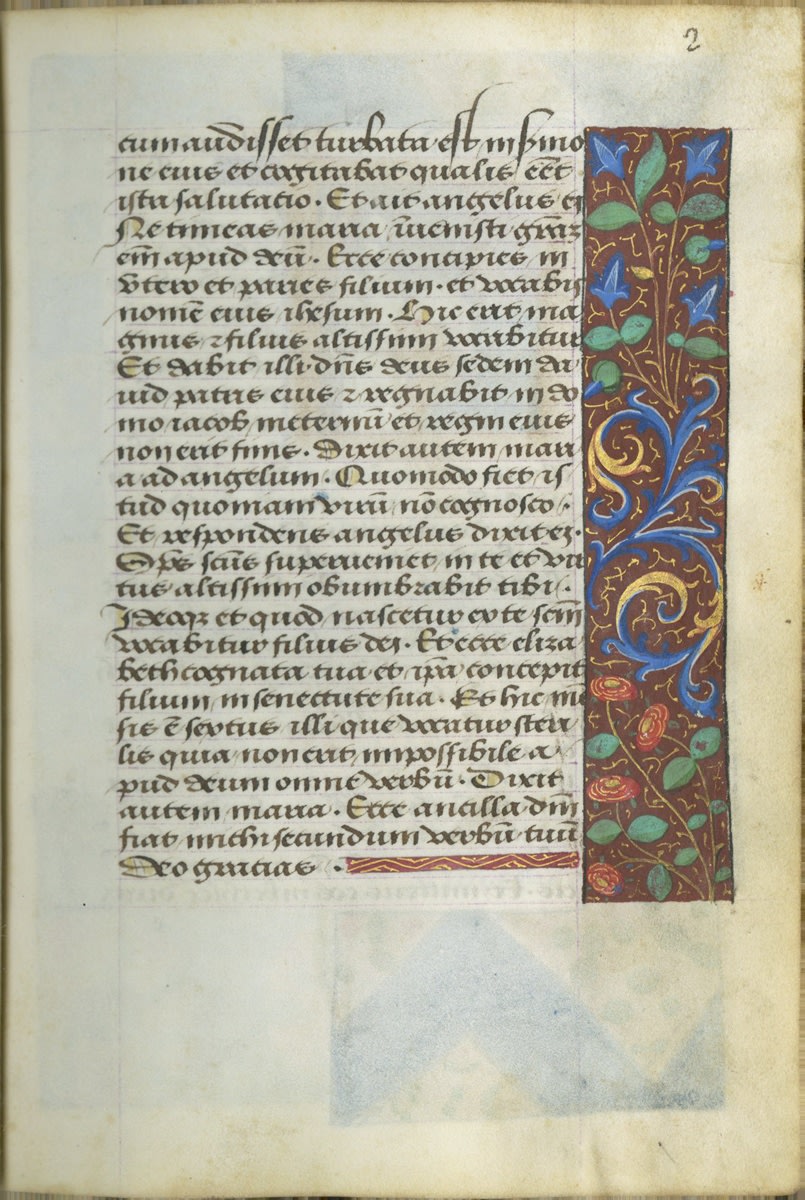 2
cum audisset turbata est in s̃mo
ne eius et cogitabat qualis eẽt
ista salutatio · Et ait angelus ei
Ne timeas maria ĩuenisti gr̃az
em̃ apud deũ · Ecce concipies in
ṽtero et paries filium · et vocabis
nomẽ eius ihesum · Hic erit ma
gnus ⁊ filius altissimi vocabitur
Et dabit illi dñs deus sedem da
uid patris eius ⁊ regnabit in do
mo iacob in eternũ et regni eius
non erit finis · Dixit autem mari
a ad angelum · Quomodo fiet is
tud quoniam virũ nõ cognosco ·
Et respondens angelus dixit ei ·
Sp̃s sc̃us superueniet in te et vir
tus altissimi obumbrabit tibi ·
Ideoqz et quod nascetur ex te sc̃m
vocabitur filius dei · Et ecce eliza
beth cognata tua et ip̃a concepit
filium in senectute sua · Et hic mẽ
sis ẽ sextus illi que vocatur steri
lis quia non erit impossibile a
pud deum omne verbũ · Dixit
autem maria · Ecce ancilla dñi
fiat michi secundum verbũ tuũ
Deo gracias ·